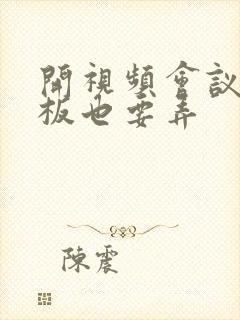 開視頻會議
板也要弄
陳震